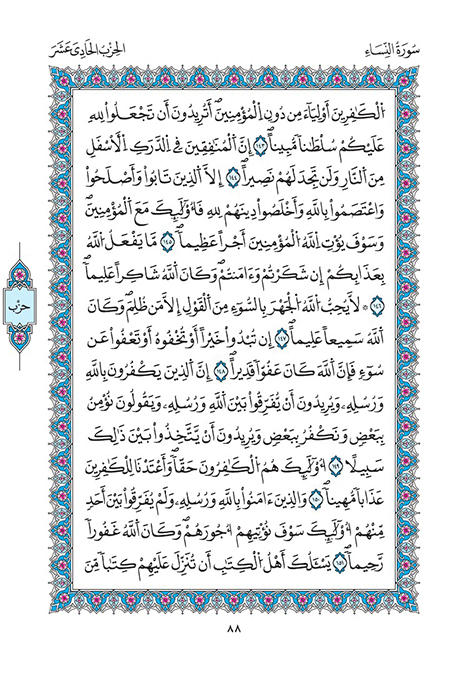 سُورَةُ النِّسَاءِ
الحِزْبُ الحَادِي عَشَرَ
اَلْكَٰفِرِينَ أَوْلِيَآءَ مِن دُونِ اِلْمُؤْمِنِينَۖ أَتُرِيدُونَ أَن تَجْعَلُواْ لِلهِ
عَلَيْكُمْ سُلْطَٰناً مُّبِيناًۖ ١٤٣ إِنَّ اَلْمُنَٰفِقِينَ فِي اِلدَّرَكِ اِلْأَسْفَلِ
مِنَ اَلنّارِ وَلَن تَجِدَ لَهُمْ نَصِيراًۖ ١٤٤ إِلَّا اَلذِينَ تَابُواْ وَأَصْلَحُواْ
وَاعْتَصَمُواْ بِاللَّهِ وَأَخْلَصُواْ دِينَهُمْ لِلهِ فَأُوْلَٰٓئِكَ مَعَ اَلْمُؤْمِنِينَۖ
وَسَوْفَ يُؤْتِ اِللَّهُ اُلْمُؤْمِنِينَ أَجْراً عَظِيماًۖ ١٤٥ مَّا يَفْعَلُ اُللَّهُ
بِعَذَابِكُمْ إِن شَكَرْتُمْ وَءَامَنتُمْۖ وَكَانَ اَللَّهُ شَاكِراً عَلِيماًۖ
١٤٦ ۞ لَّا يُحِبُّ اُللَّهُ اُلْجَهْرَ بِالسُّوٓءِ مِنَ اَلْقَوْلِ إِلَّا مَن ظُلِمَۖ وَكَانَ
اَللَّهُ سَمِيعاً عَلِيماًۖ ١٤٧ إِن تُبْدُواْ خَيْراً أَوْ تُخْفُوهُ أَوْ تَعْفُواْ عَن
سُوٓءٖ فَإِنَّ اَللَّهَ كَانَ عَفُوّاً قَدِيراًۖ ١٤٨ إِنَّ اَلذِينَ يَكْفُرُونَ بِاللَّهِ
وَرُسُلِهِۦ وَيُرِيدُونَ أَن يُّفَرِّقُواْ بَيْنَ اَللَّهِ وَرُسُلِهِۦ وَيَقُولُونَ نُؤْمِنُ
بِبَعْضٖ وَنَكْفُرُ بِبَعْضٖ وَيُرِيدُونَ أَن يَّتَّخِذُواْ بَيْنَ ذَٰلِكَ
سَبِيلاً ١٤٩ أُوْلَٰٓئِكَ هُمُ اُلْكَٰفِرُونَ حَقّاًۖ وَأَعْتَدْنَا لِلْكَٰفِرِينَ
عَذَاباً مُّهِيناًۖ ١٥٠ وَالذِينَ ءَامَنُواْ بِاللَّهِ وَرُسُلِهِۦ وَلَمْ يُفَرِّقُواْ بَيْنَ أَحَدٖ
مِّنْهُمْ أُوْلَٰٓئِكَ سَوْفَ نُؤْتِيهِمْ أُجُورَهُمْۖ وَكَانَ اَللَّهُ غَفُوراً
رَّحِيماًۖ ١٥١ يَسْـَٔلُكَ أَهْلُ اُلْكِتَٰبِ أَن تُنَزِّلَ عَلَيْهِمْ كِتَٰباً مِّنَ
حِزْب
٨٨